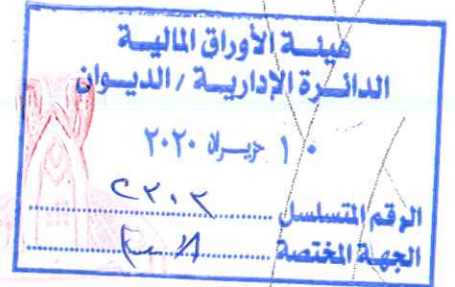 هيئة الأوراق المالية
الدائرة الإدارية / الديوان
٠١ حزيران ٢٠٢٠
الرقم المتسلسل ............ ٢٢٠٢
الجهة المختصة ............